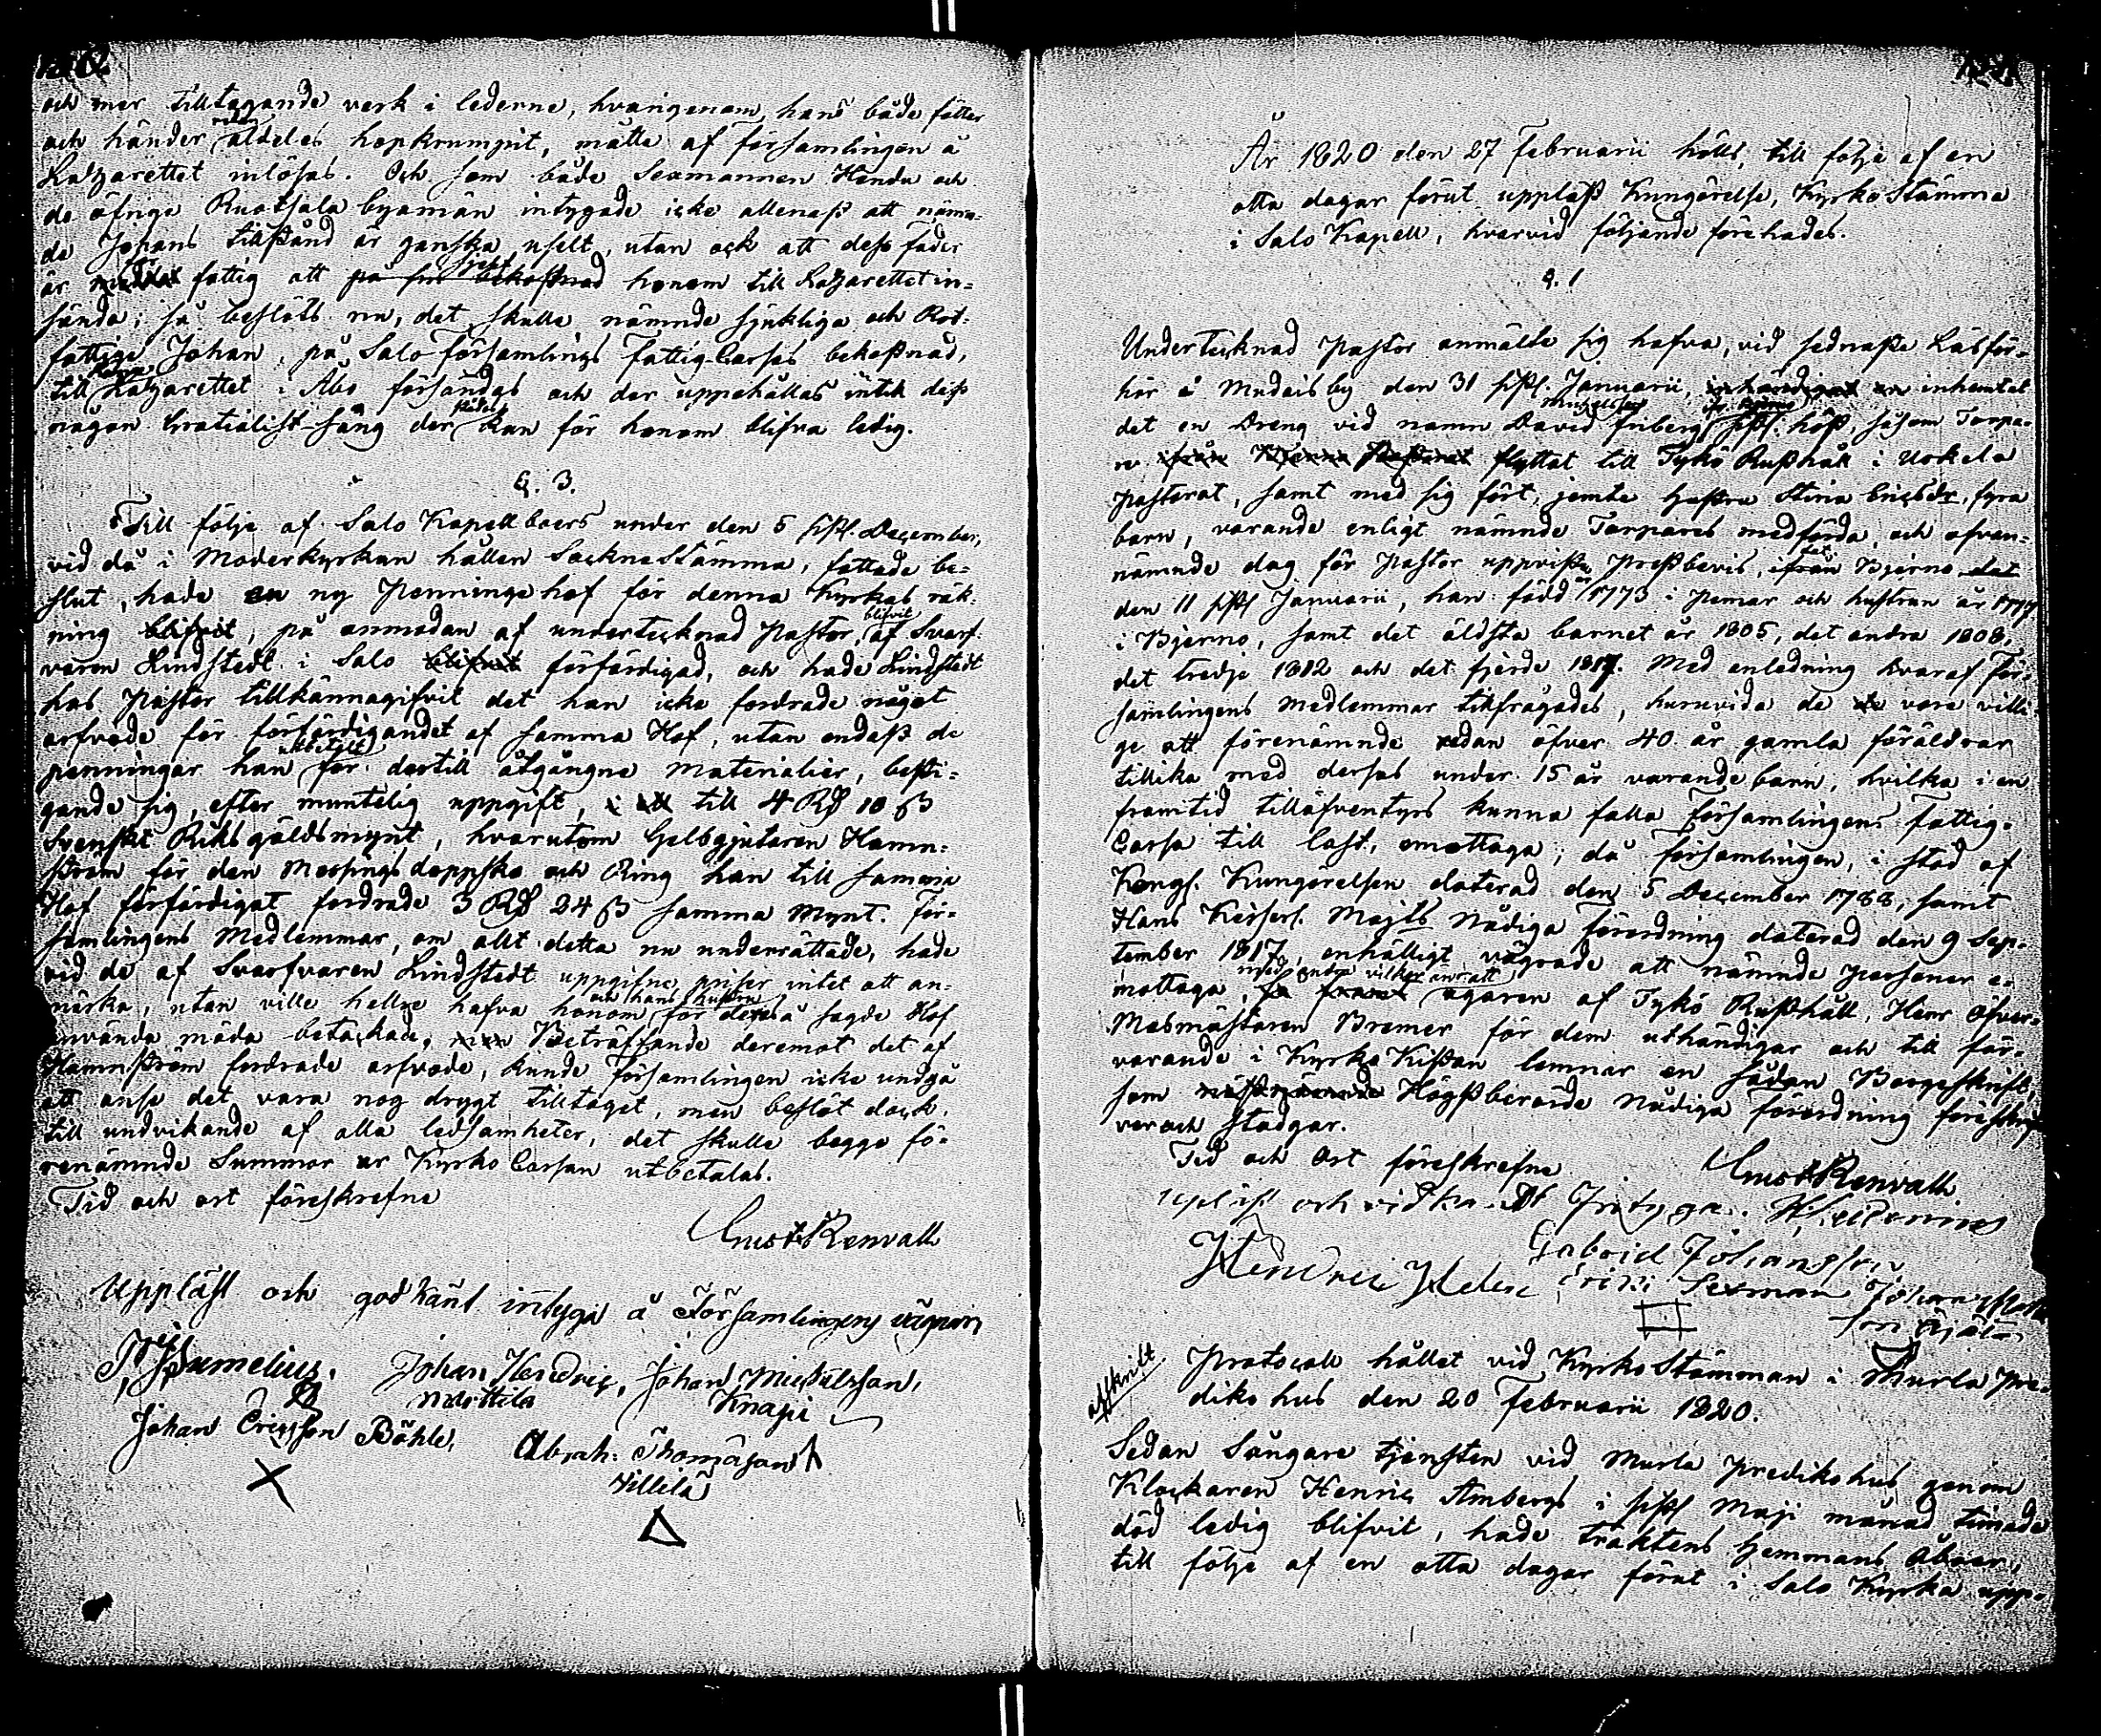 och mer tilltagande verk i lederne, hvarigenom hans både fötter
och händer redan aldeles hopkrumpit, måtte af församlingen å
Lazarettet inlösas. Och som både Sexmannen Hendu och
de öfrige Ruotsala byamän intygade icke allenast att nämn-
de Johans tillstånd är ganska uselt, utan ock att dess fader
är för fattig att sjelf på sin bekostnad honom till Lazarettet in-
sända; så beslöts nu, det skulle nämnde sjukliga och Rot-
fattige Johan, på Salo församlings fattig-Cassas bekostnad,
till Lazarettet i Åbo försändas och der uppehållas intill dess
någon Gratialist-säng der städes kan för honom blifva ledig.
§. 3.
Till följe af Salo Kapellboers under den 5 sistl. December,
vid då i Moderkyrkan hållen Sockne Stämma, fattade be-
slut, hade en ny Penninge haf för denna Kyrkas räk-
ning blifvit, på anmodan af undertecknad Pastor, blifvit af Svarf-
varen Lindstedt i Salo blifvit förfärdigad, och hade Lindstedt
hos Pastor tillkännagifvit det han icke fordrade något
arfvode för förfärdigandet af samma Haf, utan endast de
penningar han utbetalt för dertill åtgångne materialier, besti-
gande sig, efter muntelig uppgift, till 4 Rd 10 ß
Svenskt Riksgäldsmynt, hvarutom Gelbgjutaren Hamn-
ström för den Messings doppsko och Ring han till samma
Haf förfärdigat fordrade 3 Rd 24 ß samma Mynt. För-
samlingens Medlemmar, om allt detta nu underrättade, hade
vid de af Svarfvaren Lindstedt uppgifne priser intet att an-
märka, utan ville hellre hafva honom och hans hustru för deras å sagde Haf
använda möda betackade, men Beträffande deremot det af
Hamnström fordrade arfvode, kunde Församlingen icke undgå
att anse det vara nog drygt tilltaget, men beslöt dock,
till undvikande af alla ledsamheter, det skulle begge fö-
renämnde Summor ur Kyrko Cassan utbetalas.
Tid och ort föreskrefne
Gust Renvall
Uppläst och godkänt intyga å Församlingens vägnar
Sumelius. Johan Hendric, Johan Mickelsson,
Mattila Knapi
Johan Ericsson Böhle, Abrah: Thomasson
Villilä
År 1820 den 27 Februarii hölls, till följe af en
otta dagar förut uppläst Kungörelse, Kyrko Stämma
i Salo Kapell, hvarvid följande förehades.
§. 1
Undertecknad Pastor anmälte sig hafva, vid sednaste Läsför-
hör å Mudais by den 31 sistl. Januarii, inhändigat en inhemtat
det en Dreng vid namn David Michelsson Friberg sistl. höst, såsom Torpa-
re ifrån Bjerno Pastorat flyttat till Tykö Rusthåll i Uskela
pastorat, samt med sig fört, jemte hustru Stina Ericsdr, fyra
barn, varande enligt nämnde Torpares medförda, och ofvan-
nämnde dag för Pastor uppviste Prestbevis, ifrån Bjerno det
den 11 sistl Januarii, han född år 1773 i Pemar och hustrun år 1777
i Bjerno, samt det äldsta barnet år 1805, det andra 1808,
det tredje 1812 och det fjerde 1817. Med anledning hvaraf För-
samlingens Medlemmar tillfrågades, huruvida de vore villi-
ge att förenämnde redan öfver 40 år gamla föräldrar
tillika med derras under 15 år varande barn, hvilka i en
framtid tilläfventyrs kunna falla Församlingens Fattig-
Cassa till last, emottaga; då församlingen, i stöd af
Kongl. Kungörelsen daterad den 5 December 1788, samt
Hans Keiserl. Majts Nådiga Förordning daterad den 9 Sep-
tember 1817, enhälligt vägrade att nämnde personer e-
mottaga, med andra vilkor än att ägaren af Tykö Rusthåll, Herr Öfver-
Masmästaren Bremer för dem uthändigar och till för-
varande i Kyrko Kistan lemnar en sådan Borgeskrift,
som nästnämnde Högstberörde Nådiga förordning föreskrif-
ver och stadgar.
Tid och Ort föreskrefne
Gust Renvall
upläst och vidkändt Intyga.
Gabriel Johansson
Hendric Erik Sexman Johan
Afskrift
Protocoll hållet vid Kyrko Stämman i Murla Pre-
diko hus den 20 Februarii 1820.
Sedan Sångare tjensten vid Murla Prediko hus genom
Klockaren Henric Ambergs i sistl Maji månad timade
död ledig blifvit, hade traktens Hemmans Åboer,
till följe af en otta dagar förut i Salo Kyrka upp-